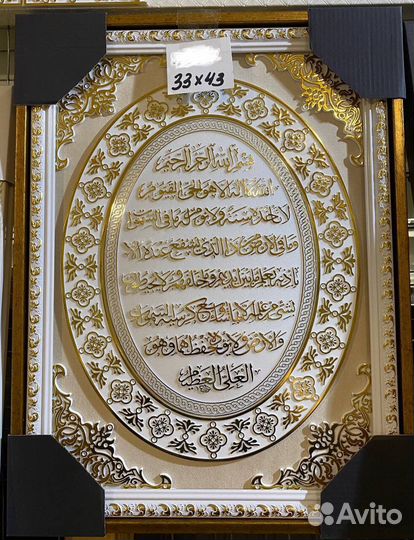 33 x 43
بسم الله الرحمن الرحيم
الله لا اله الا هو الحي القيوم
لا تأخذه سنة ولا نوم له ما في السموات
وما في الارض من ذا الذي يشفع عنده الا
باذنه يعلم ما بين ايديهم وما خلفهم ولا يحيطون
بشيء من علمه الا بما شاء وسع كرسيه السموات
والارض ولا يؤده حفظهما وهو
العلي العظيم
Avito